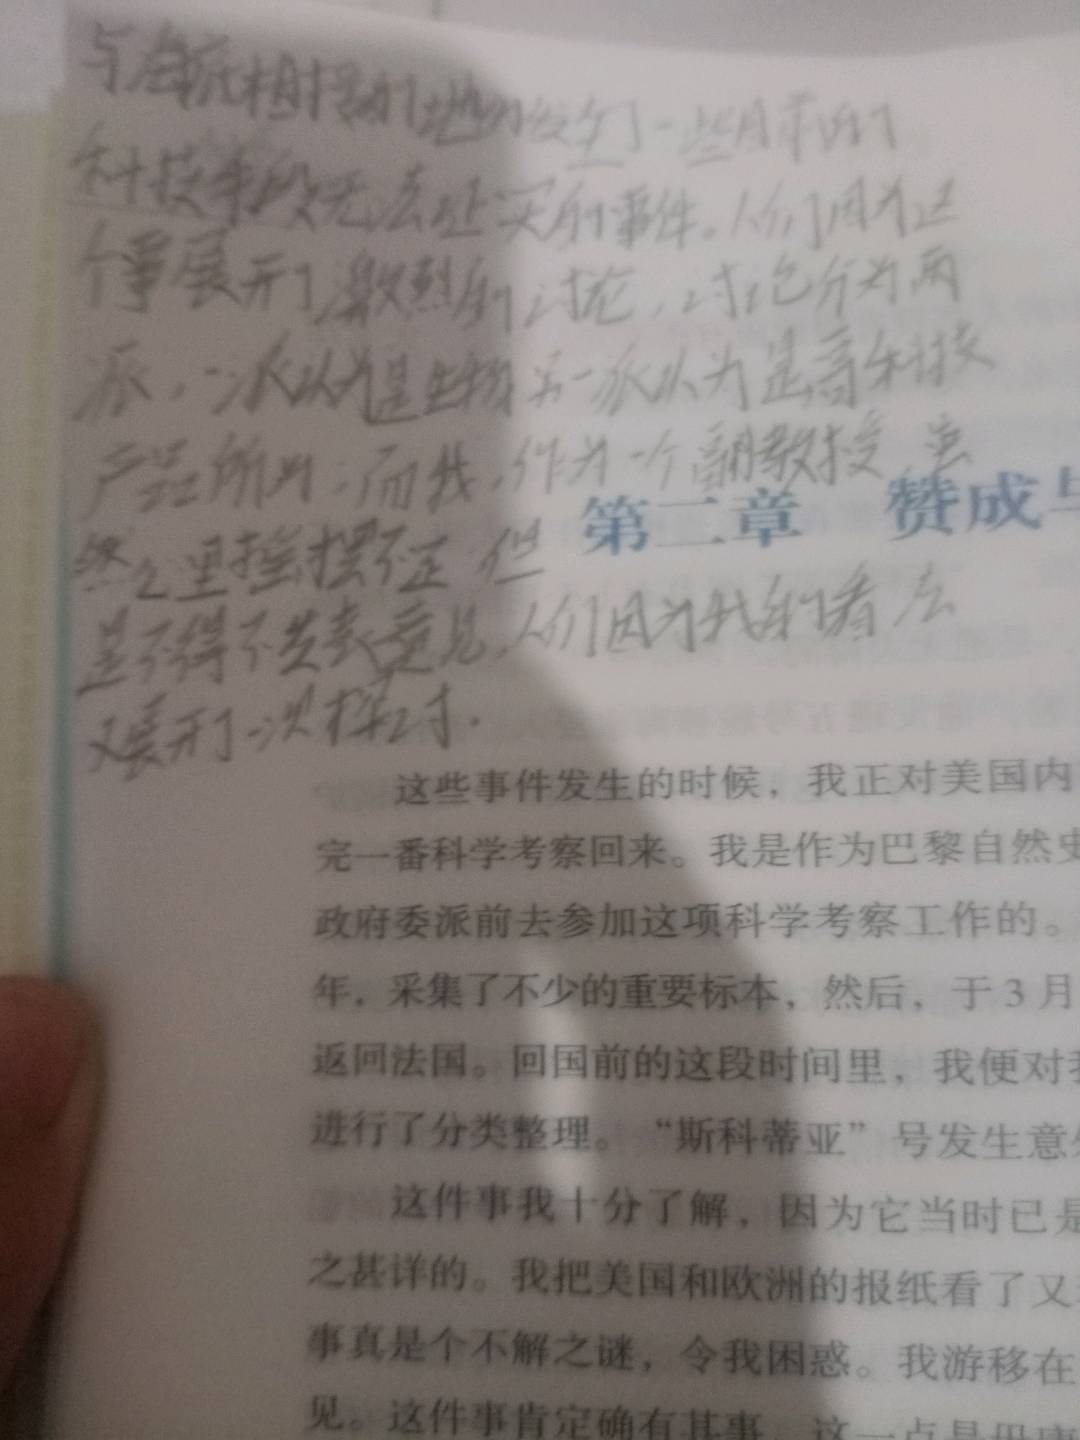 地方发生了一些目前的
科技手段无法处买的事件。人们因为这
个事展开了激烈的讨论，讨论分为两
派，一派从为是生物另一派从为是高科技
产品所为；而我，作为一个副教授
之里摇摆不定 但
是不得不发表意见，人们因为我的看法
又展开了一次探讨.
第二章 赞成与
这些事件发生的时候，我正对美国内
完一番科学考察回来。我是作为巴黎自然史
政府委派前去参加这项科学考察工作的。
年，采集了不少的重要标本，然后，于3月
返回法国。回国前的这段时间里，我便对我
进行了分类整理。“斯科蒂亚”号发生意外
这件事我十分了解，因为它当时已是
之甚详的。我把美国和欧洲的报纸看了又
事真是个不解之谜，令我困惑。我游移在
见。这件事肯定确有其事，这一点是毋庸